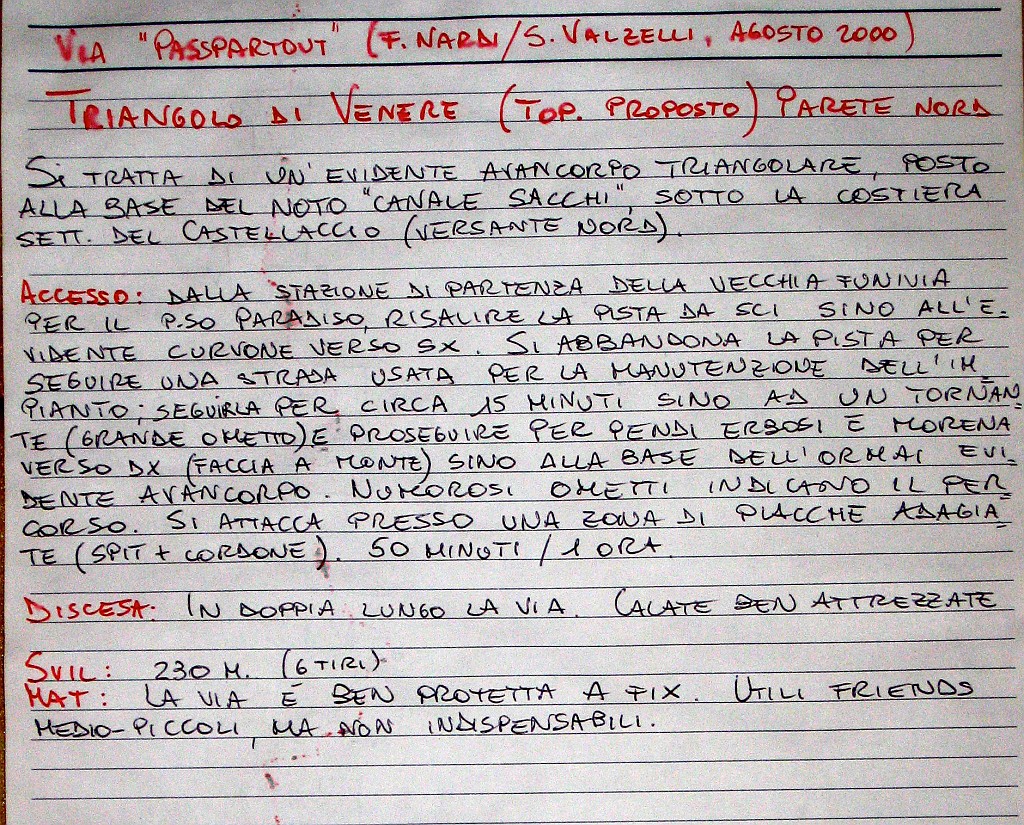 VIA "PASSPARTOUT" (F. NARDI/S. VALZELLI, AGOSTO 2000)
TRIANGOLO DI VENERE (TOP. PROPOSTO) PARETE NORD
SI TRATTA DI UN'EVIDENTE AVANCORPO TRIANGOLARE, POSTO
ALLA BASE DEL NOTO "CANALE SACCHI", SOTTO LA COSTIERA
SETT. DEL CASTELLACCIO (VERSANTE NORD).
ACCESSO: DALLA STAZIONE DI PARTENZA DELLA VECCHIA FUNIVIA
PER IL P.SO PARADISO, RISALIRE LA PISTA DA SCI SINO ALL'E-
VIDENTE CURVONE VERSO SX. SI ABBANDONA LA PISTA PER
SEGUIRE UNA STRADA USATA PER LA MANUTENZIONE DELL'IM-
PIANTO; SEGUIRLA PER CIRCA 15 MINUTI SINO AD UN TORNAN-
TE (GRANDE OMETTO) E PROSEGUIRE PER PENDI ERBOSI E MORENA
VERSO DX (FACCIA A MONTE) SINO ALLA BASE DELL'ORMAI EVI-
DENTE AVANCORPO. NUMOROSI OMETTI INDICANO IL PER-
CORSO. SI ATTACCA PRESSO UNA ZONA DI PLACCHE ADAGIA-
TE (SPIT + CORDONE). 50 MINUTI / 1 ORA.
DISCESA: IN DOPPIA LUNGO LA VIA. CALATE BEN ATTREZZATE
SVIL: 230 M. (6 TIRI)
MAT: LA VIA È BEN PROTETTA A FIX. UTILI FRIENDS
MEDIO-PICCOLI, MA NON INDISPENSABILI.